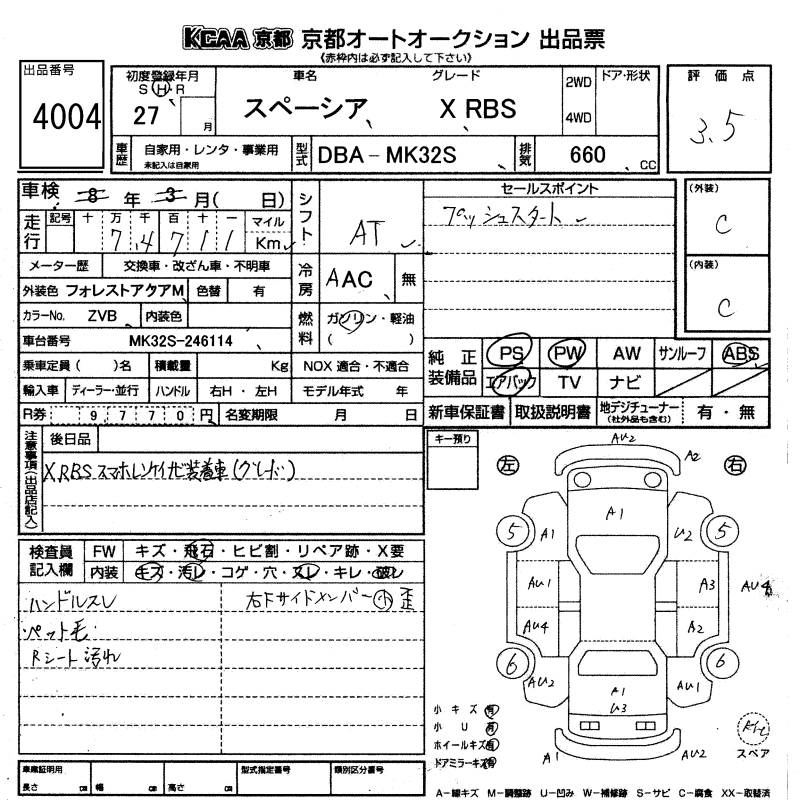 KCAA 京都 京都オートオークション 出品票
《赤枠内は必ず記入して下さい》
出品番号
4004
初度登録年月
S H R
27
月
車名
スペーシア
グレード
X RBS
2WD
4WD
ドア・形状
評価点
3.5
車歴
自家用・レンタ・事業用
未記入は自家用
型式
DBA－MK32S
排気
660 CC
車検 8 年 3 月( 日)
走行
記号 十 万 千 百 十 一
7 4 7 1 1
マイル
Km
シフト
AT
セールスポイント
プッシュスタート
(外装)
C
(内装)
C
メーター歴 交換車・改ざん車・不明車
外装色 フォレストアクアM 色替 有
冷房
AAC 無
カラーNo. ZVB 内装色
燃料
ガソリン・軽油
( )
車台番号 MK32S-246114
乗車定員( )名 積載量 Kg
NOX 適合・不適合
輸入車 ディーラー・並行 ハンドル 右H・左H モデル年式 年
R券 9770円 名変期限 月 日
純正装備品
PS PW AW サンルーフ ABS
エアバック TV ナビ
新車保証書 取扱説明書 地デジチューナー 有・無
(社外品も含む)
注意事項(出品店記入)
後日品
X RBS スマホレンケイナビ装着車(グレード)
キー預り
左
右
検査員記入欄
FW キズ・飛石・ヒビ割・リペア跡・X要
内装 キズ・汚レ・コゲ・穴・スレ・キレ・破レ
ハンドルスレ
ペット毛
Rシート汚れ
右Fサイドメンバー小歪
AU2
A2
5
A1
A1
U2
5
AU1
A3
AU4
AU4
A2
6
AU2
A1
U3
AU1
6
A1
AU2
小キズ有
小U有
ホイールキズ有
ドアミラーキズ有
スペア
車庫証明用
長さ cm 幅 cm 高さ cm
型式指定番号
類別区分番号
A－線キズ M－調整跡 U－凹み W－補修跡 S－サビ C－腐食 XX－取替済